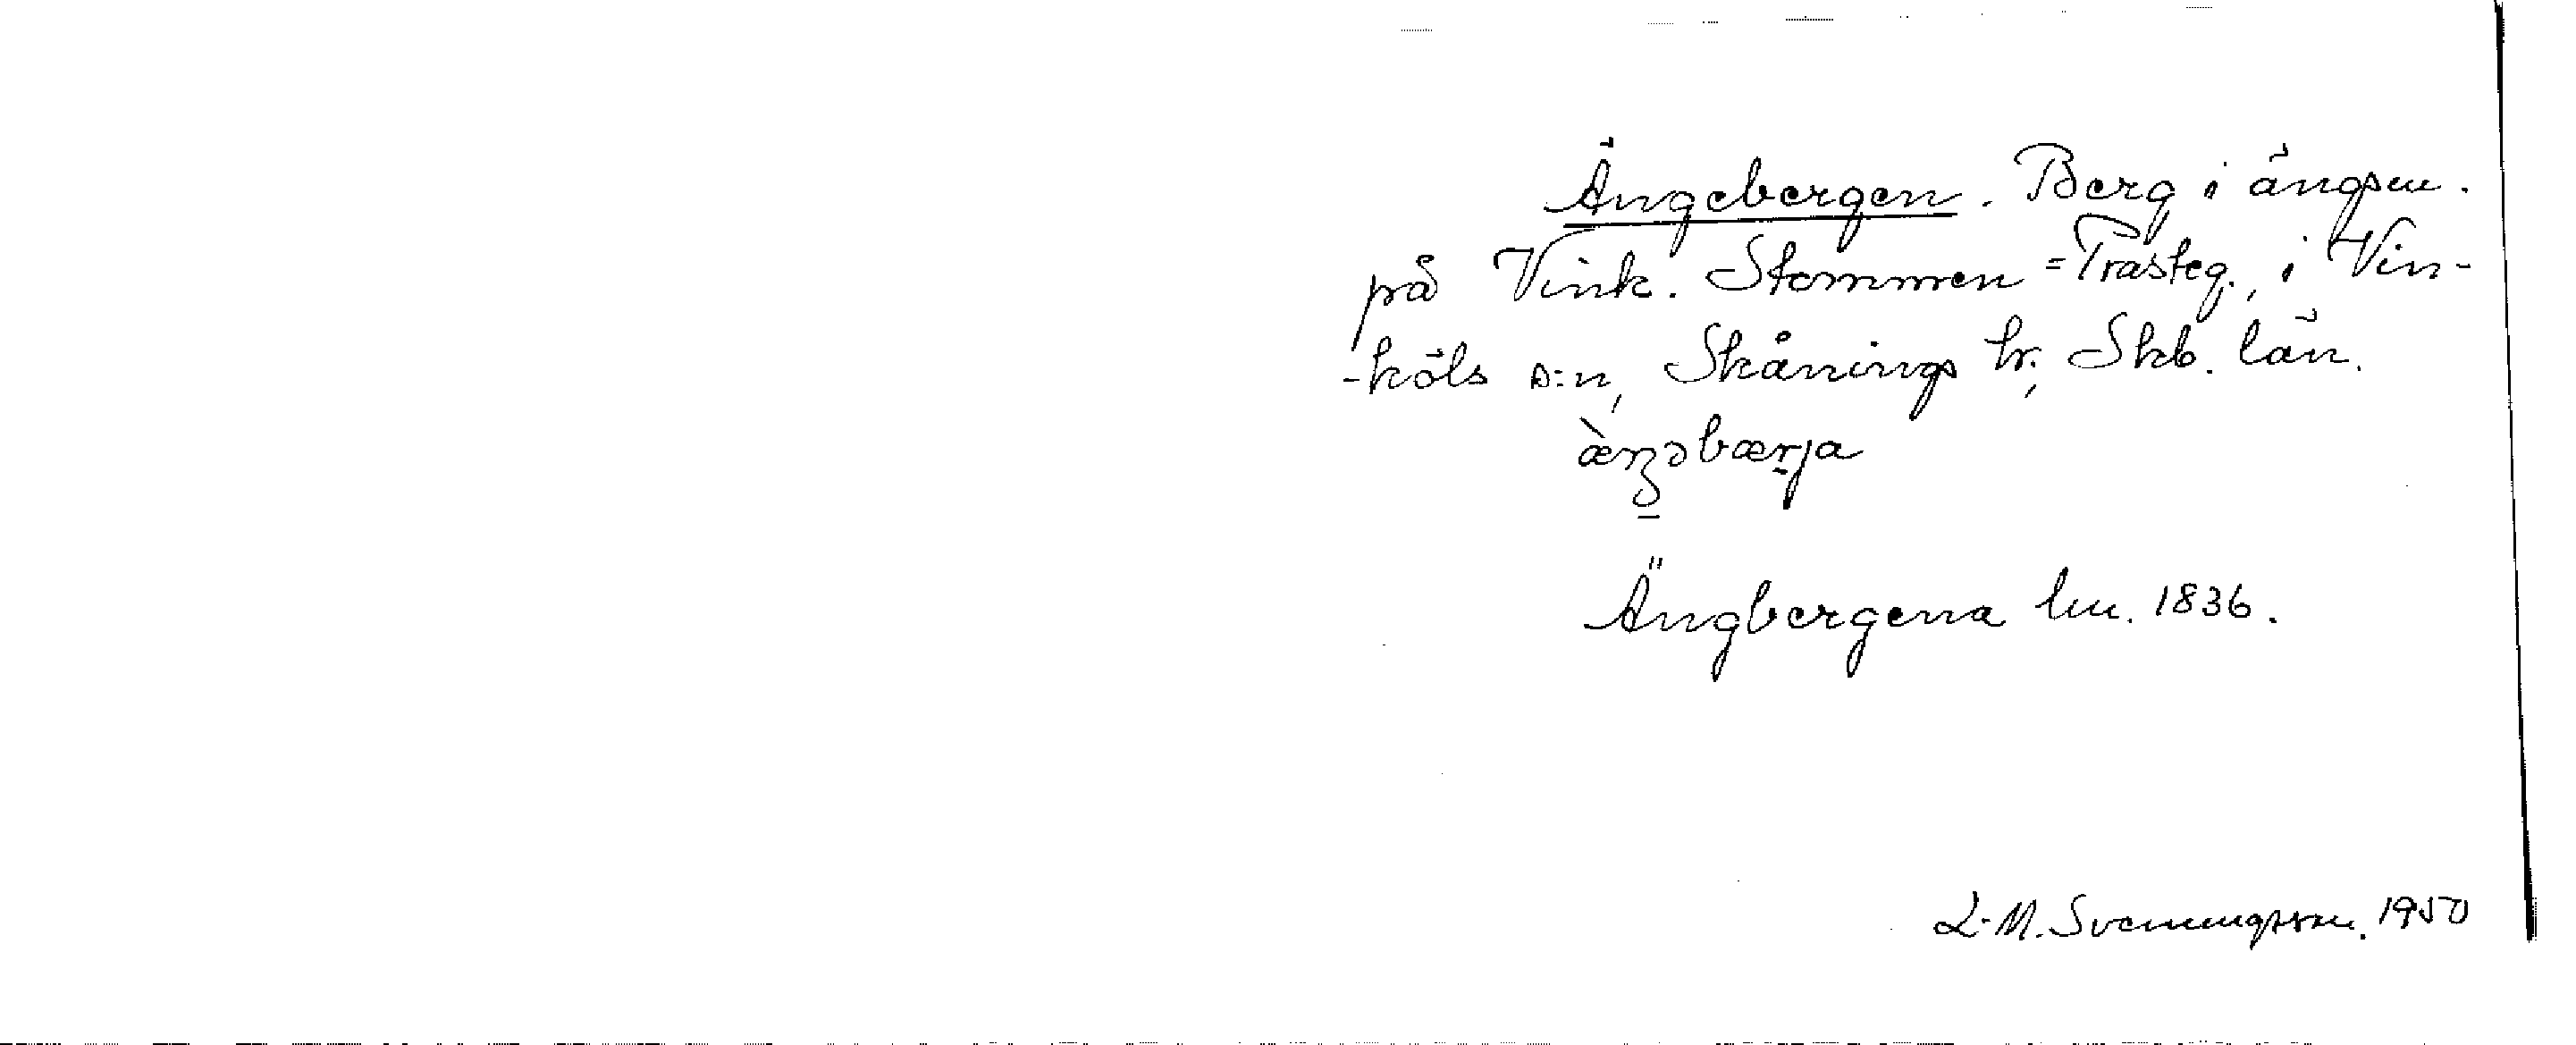 Ängebergen. Berg i ängsm.
på Vink. Stommen = Prästeg., i Vin-
-köls s:n, Skånings hr., Skb. län.
Ängbergena lm. 1836.
L-M. Svenningsson. 1950